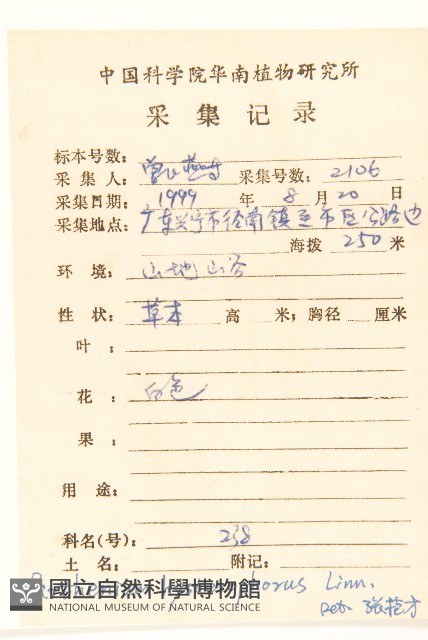 中国科学院华南植物研究所
采集记录
标本号数：
采集人： 采集号数：2106
采集日期：1999年8月20日
采集地点：广东兴宁市径南镇至市区公路边
海拨 250 米
环境：山地山谷
性状：草本 高 米；胸径 厘米
叶：
花：白色
果：
用途：
科名(号)：238
土名： 附记：
國立自然科學博物館
NATIONAL MUSEUM OF NATURAL SCIENCE
Linn.
Det.